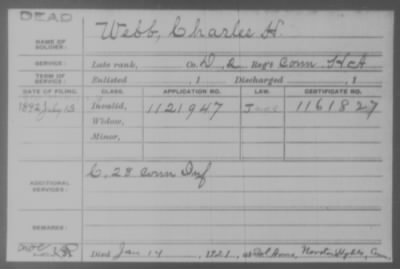 DEAD
NAME OF SOLDIER: Webb, Charles H.
SERVICE: Late rank, Co. D, 2 Reg't Conn. H A
TERM OF SERVICE: Enlisted , 1 Discharged , 1
DATE OF FILING. CLASS. APPLICATION NO. LAW. CERTIFICATE NO.
1892 July 13 Invalid, 1121947 1161827
Widow,
Minor,
ADDITIONAL SERVICES: C. 28 Conn Inf
REMARKS:
Died Jan 14, 1921, at Sol Home, Noroton Hghts, Conn.